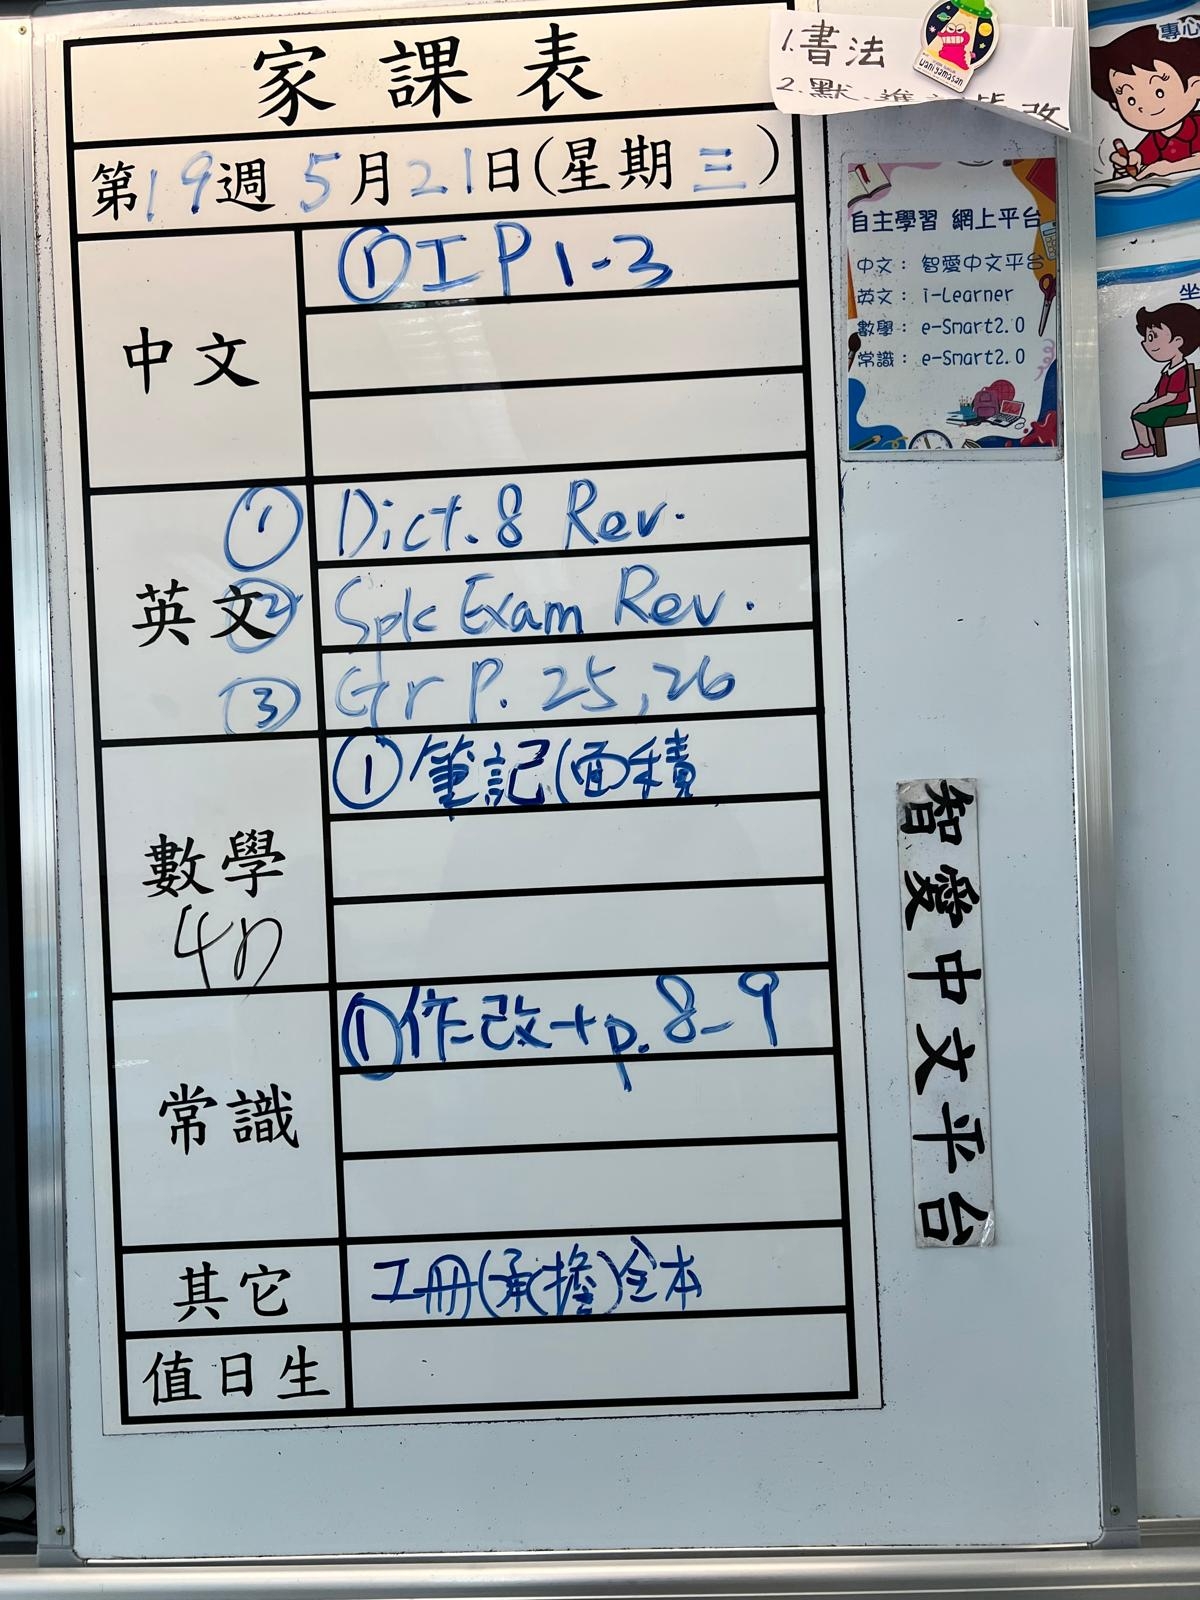 家課表
第19週 5月21日(星期三)
中文
① 工 P 1-3
英文
① Dict. 8 Rev.
② Spk Exam Rev.
③ Gr P. 25, 26
數學
4D
① 筆記(面積
常識
① 作改+p. 8-9
其它
工冊(承擔)全本
值日生
1. 書法
2. 默
改
uanigamasan
自主學習 網上平台
中文： 智愛中文平台
英文： i-Learner
數學： e-Smart2.0
常識： e-Smart2.0
智愛中文平台
專心
坐